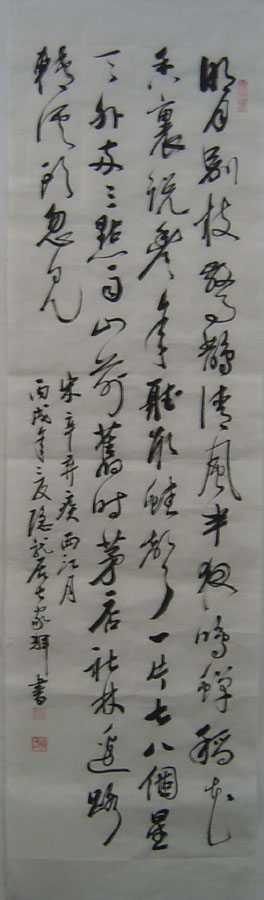 明月別枝驚鵲清風半夜鳴蟬稻花
香裏說豐年聽取蛙聲一片七八個星
天外兩三點雨山前舊時茅店社林邊路
轉溪頭忽見
宋辛弃疾西江月
丙戌年之夏隱龍居士家輝書